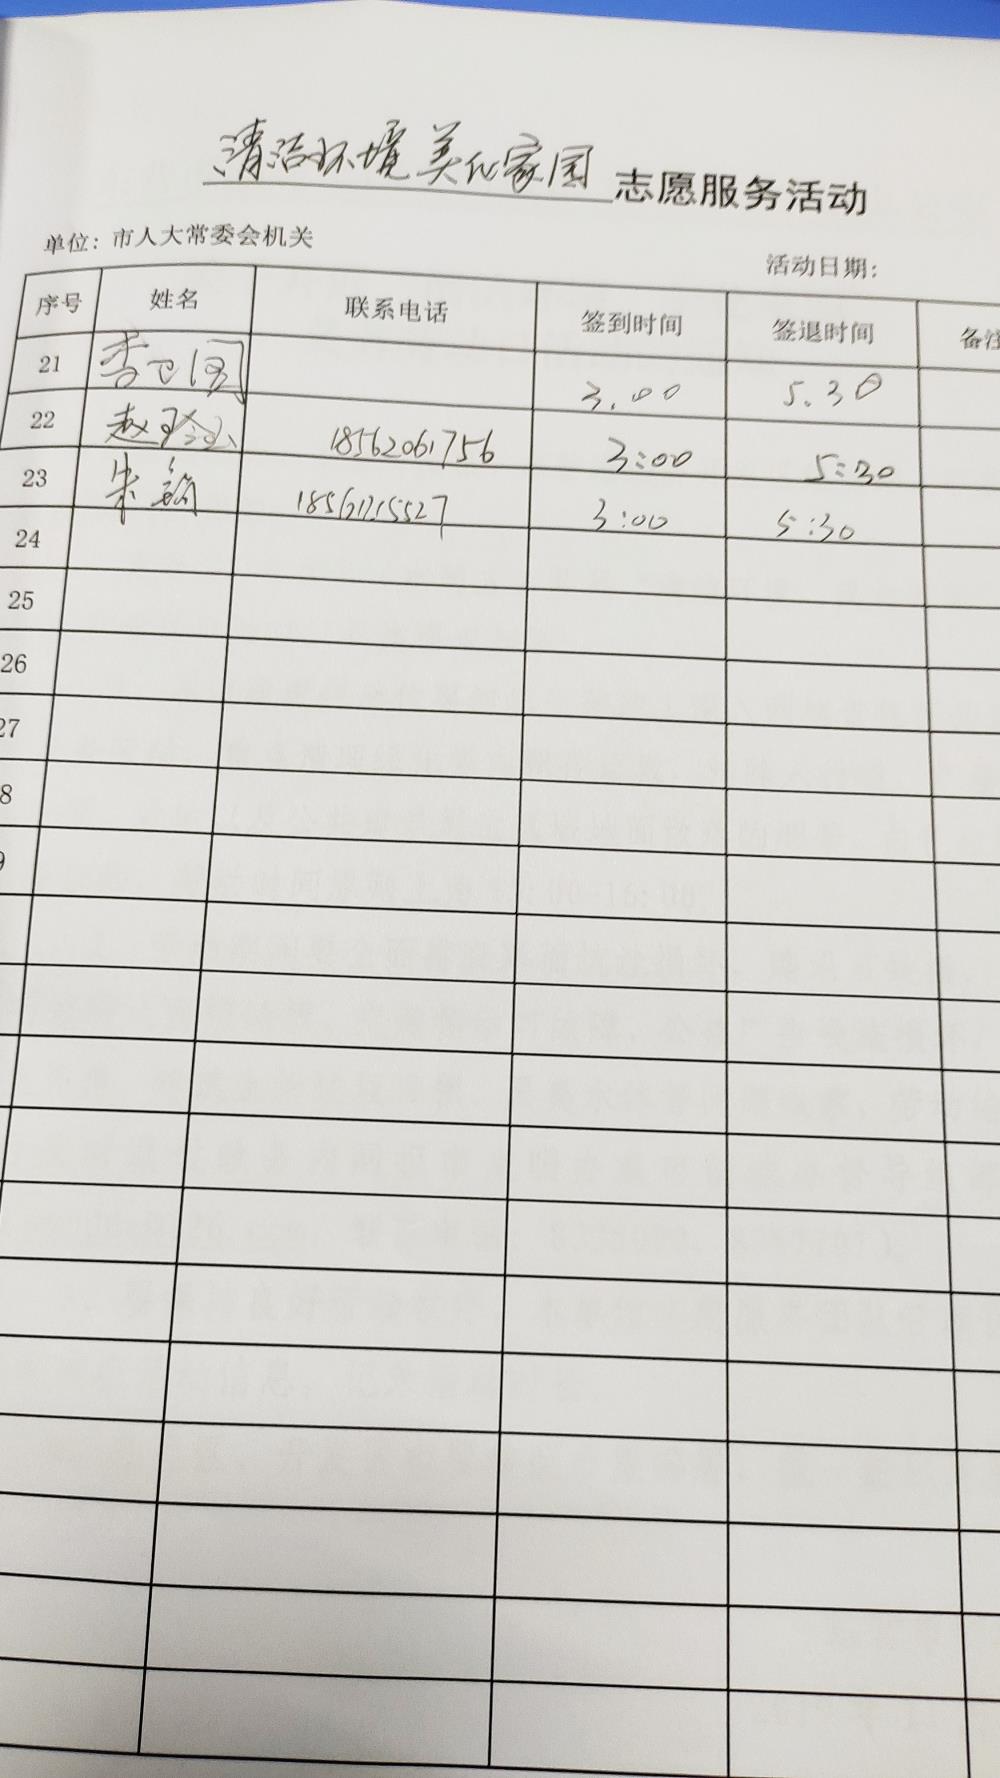 清洁环境 美化家园 志愿服务活动
单位：市人大常委会机关
活动日期：
序号 姓名 联系电话 签到时间 签退时间 备注
21 李卫国 3.00 5.30
22 赵 18562061756 3:00 5:30
23 朱 3:00 5:30
24
25
26
27
8
9